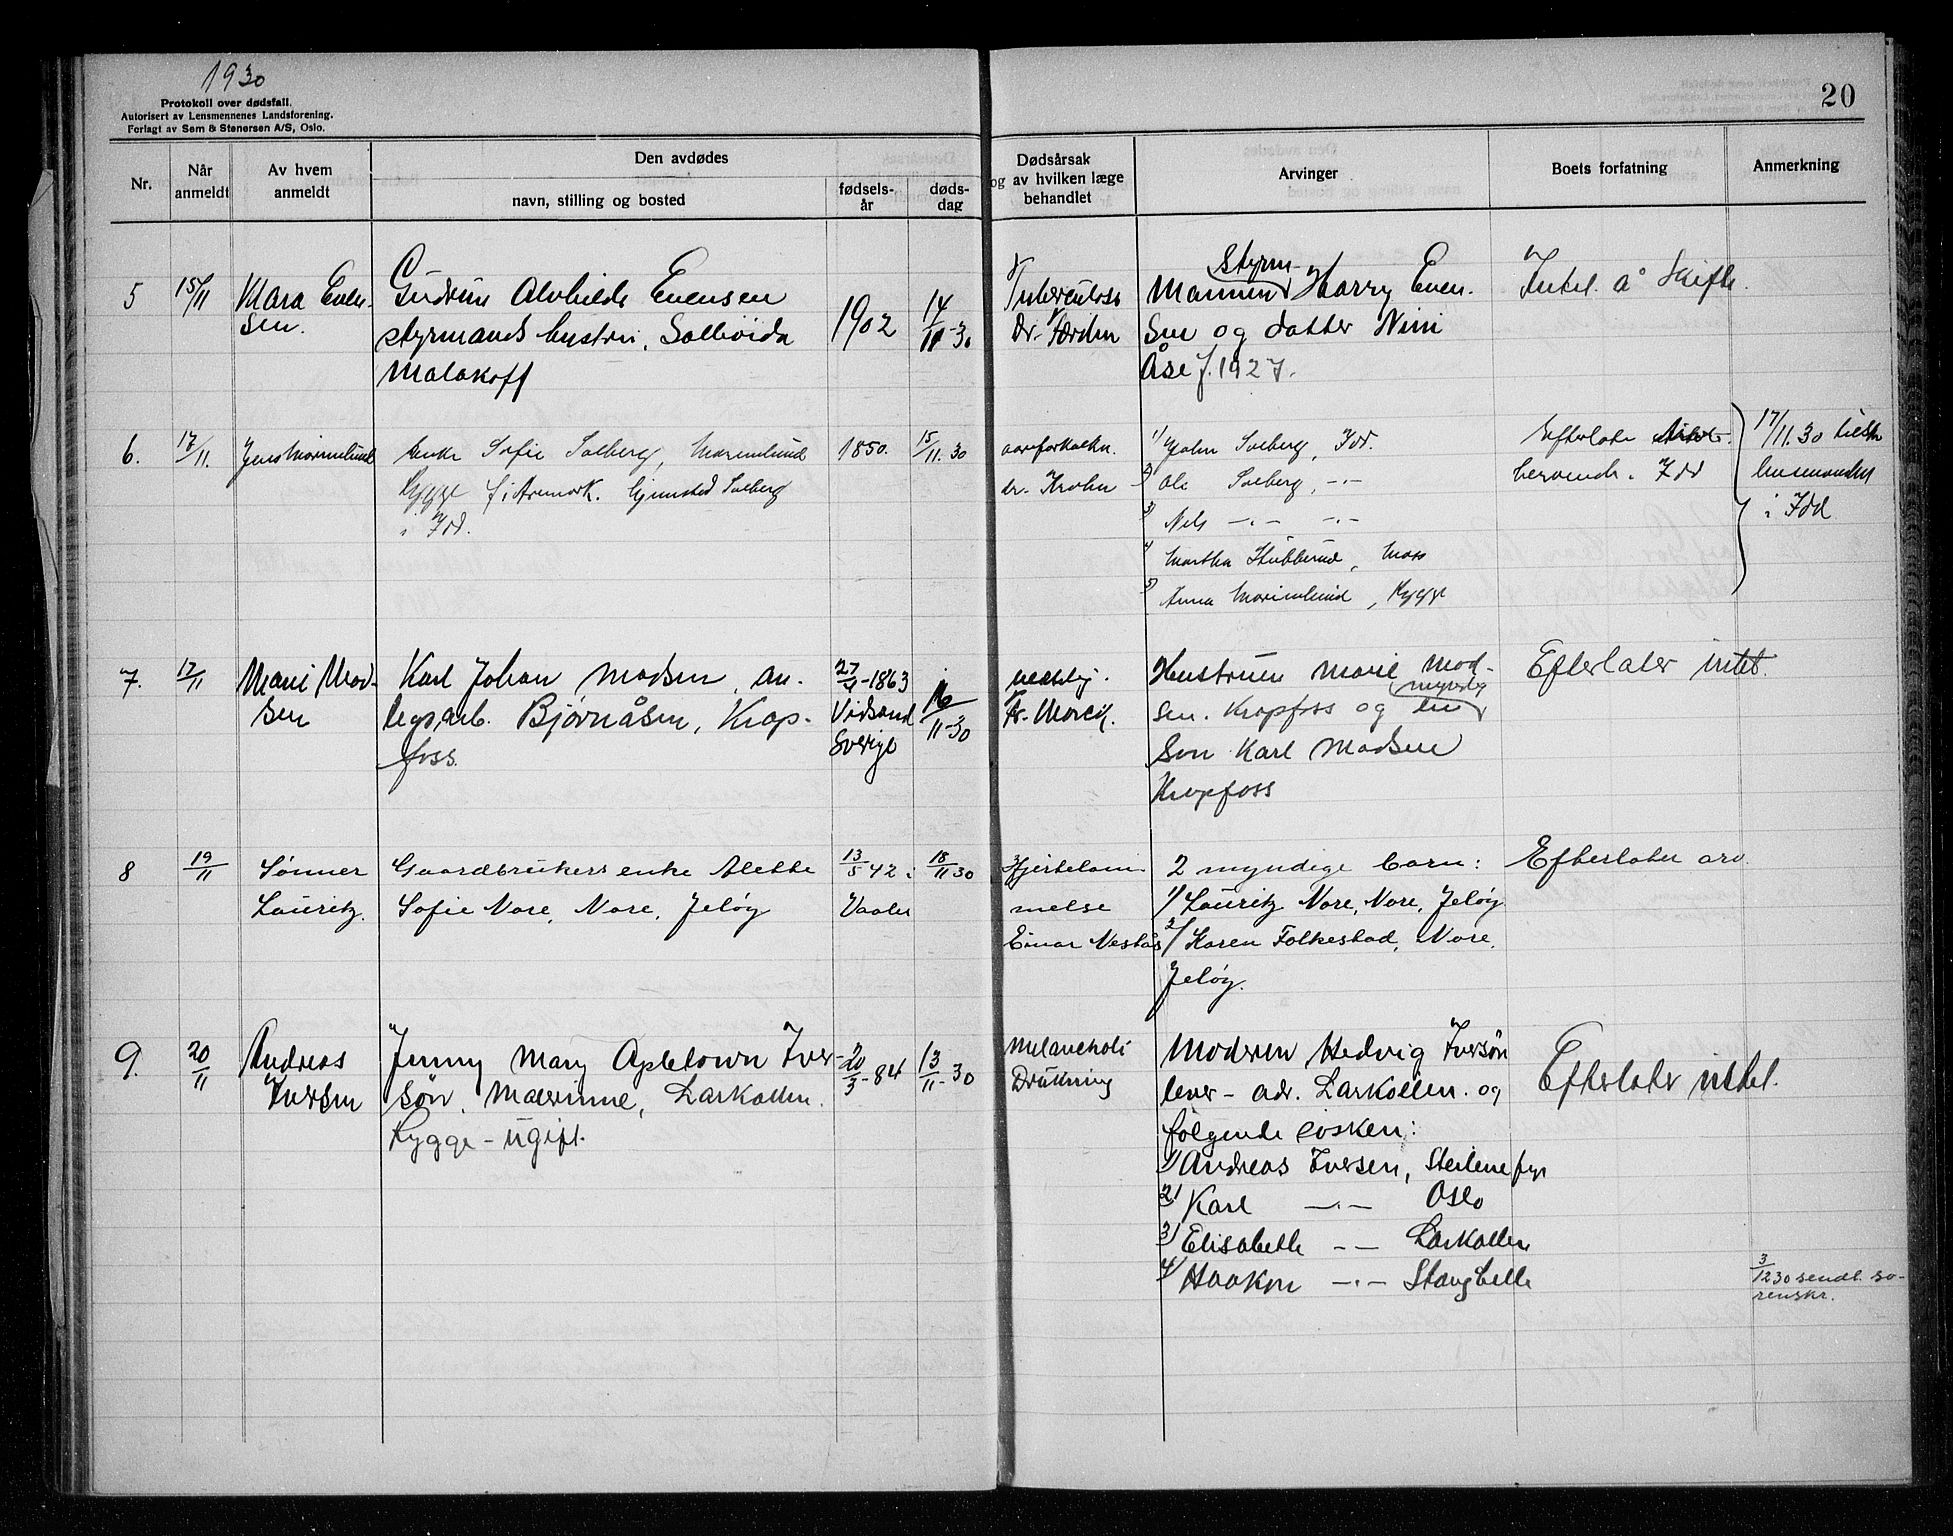 1930
Protokoll over dødsfall.
Autorisert av Lensmennenes Landsforening.
Forlagt av Sem & Stenersen A/S, Oslo.
20
Nr.
Når anmeldt
Av hvem anmeldt
Den avdødes
navn, stilling og bosted
fødsels-år
døds-dag
Dødsårsak og av hvilken læge behandlet
Arvinger
Boets forfatning
Anmerkning
5
15/11
Klara Even-
sen.
Gudrun Alvhilde Evensen
styrmands hustru, Solli
Malakoff
1902
14/11-30
Tuberculose
Dr.
Styrm-
Mannen Harry Even-
sen og datter Nini
Åse f. 1927.
Intet å skifte.
6.
17/11.
Jens
Enke Sofie Solberg,
Rygge f. i Aremark. Hjemsted Solberg
i Idd.
1850.
15/11.30
aareforkalkn.
dr. Krohn
1) John Solberg, Idd.
2) Ole Solberg, -"-
3) Nils -"- -"-
4) Martha Stubberud, Moss
5) Anna , Rygge
Efterlater
beroende i Idd
17/11.30 tilskr
lensmanden
i Idd
7.
17/11
Marie Mad-
sen
Karl Johan Madsen, an-
legsarb. Bjørnåsen, Krap-
foss.
27/4-1863
Sverige
16/11-30
Hustruen Marie Mad-
sen. Krapfoss og en myndig
søn Karl Madsen
Krapfoss
Efterlater intet.
8
19/11
Sønner
Lauritz.
Gaardbrukers enke Alette
Sofie Nore, Nore, Jeløy
13/5 42 i
Vaaler
18/11 30
Hjertelam-
melse
Einar Nestås
2 myndige barn:
1/ Lauritz Nore, Nore, Jeløy
2/ Karen Folkestad, Nore,
Jeløy.
Efterlater arv
9.
20/11
Andreas
Iversen
Jenny Mary Apletown Iver-
søn, Malerinne, Larkollen.
Rygge - ugift.
20/3-84
13/11-30
Melancholi
Drukning
Moderen Hedvig Iversøn
lever - adr. Larkollen. og
følgende søsken:
1) Andreas Iversen, Steilene fyr
2) Karl -"- Oslo
3) Elisabeth -- Larkollen
4) Haakon -"- Stangbelle
Efterlater intet.
3/12 30 sendt so-
renskr.